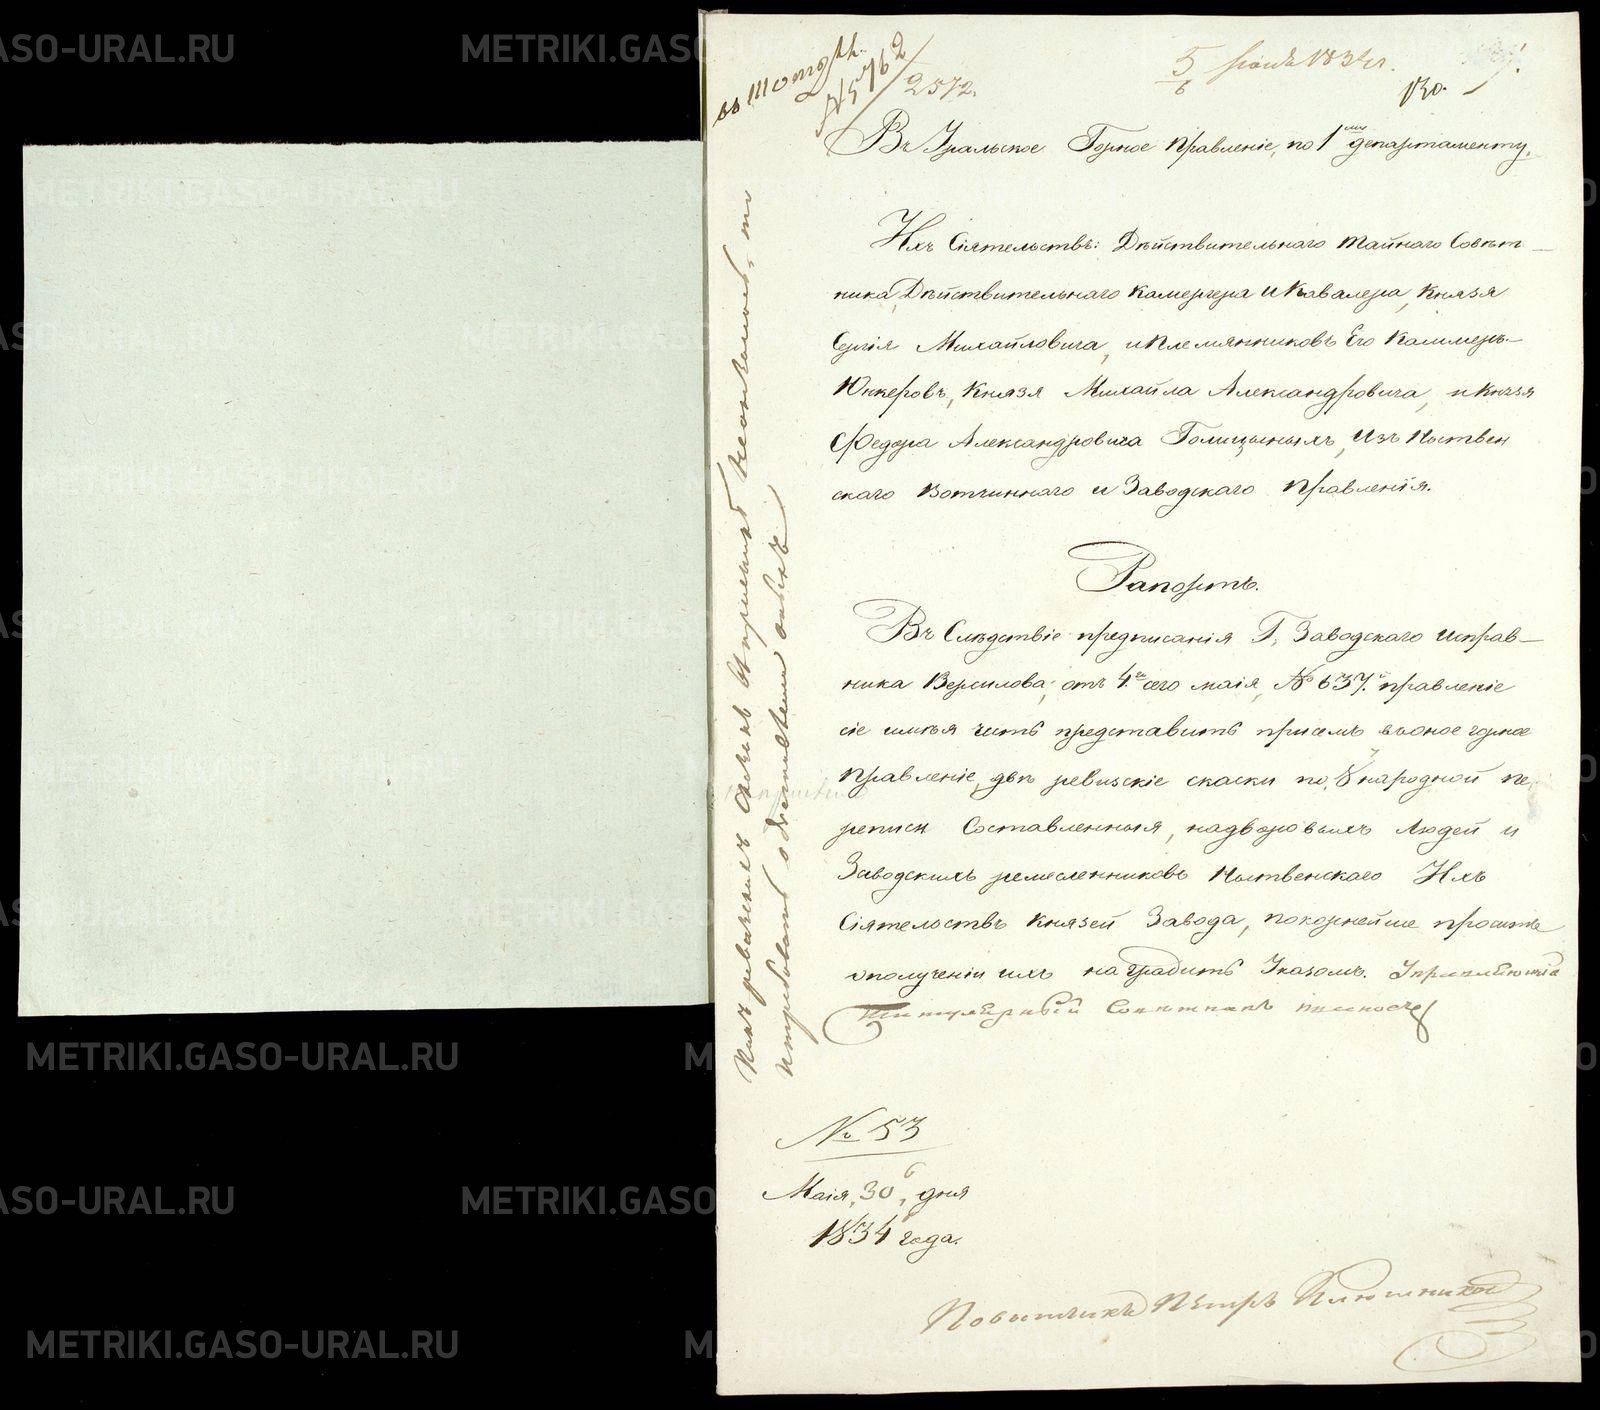 № 5762
2572.
5 Іюня 1834 г.
Въ Уральское Горное Правленіе, по 1му департаменту.
Ихъ Сіятельствъ: Дѣйствительнаго тайнаго Совѣт-
ника, Дѣйствительнаго Камергера и Кавалера, Князя
Сергія Михайловича, и Племянниковъ Его Каммеръ-
Юнкеровъ, Князя Михайла Александровича, и Князя
Федора Александровича Голицыныхъ, Изъ Нытвен
скаго Вотчиннаго и Заводскаго Правленія.
Рапортъ.
Въ Слѣдствіе предписанія Г. Заводскаго исправ-
ника Вермилова, отъ 4го сего маія, № 637. правленіе
сіе имѣя честь представить присемъ въоное горное
Правленіе, двѣ ревизскіе скаски по, 8й народной пе,
реписи Составленныя, надворовыхъ людей и
Заводскихъ ремесленниковъ Нытвенскаго Ихъ
Сіятельствъ Князей Завода, покорнейше проситъ
ополученіи ихъ наградить Указомъ. Управляющій
Титулярный Совѣтникъ
№ 53
Маія, 30го, дня
1834 года.
Повытчикъ Петръ Ключниковъ
Какъ ревизскихъ
METRIKI.GASO-URAL.RU